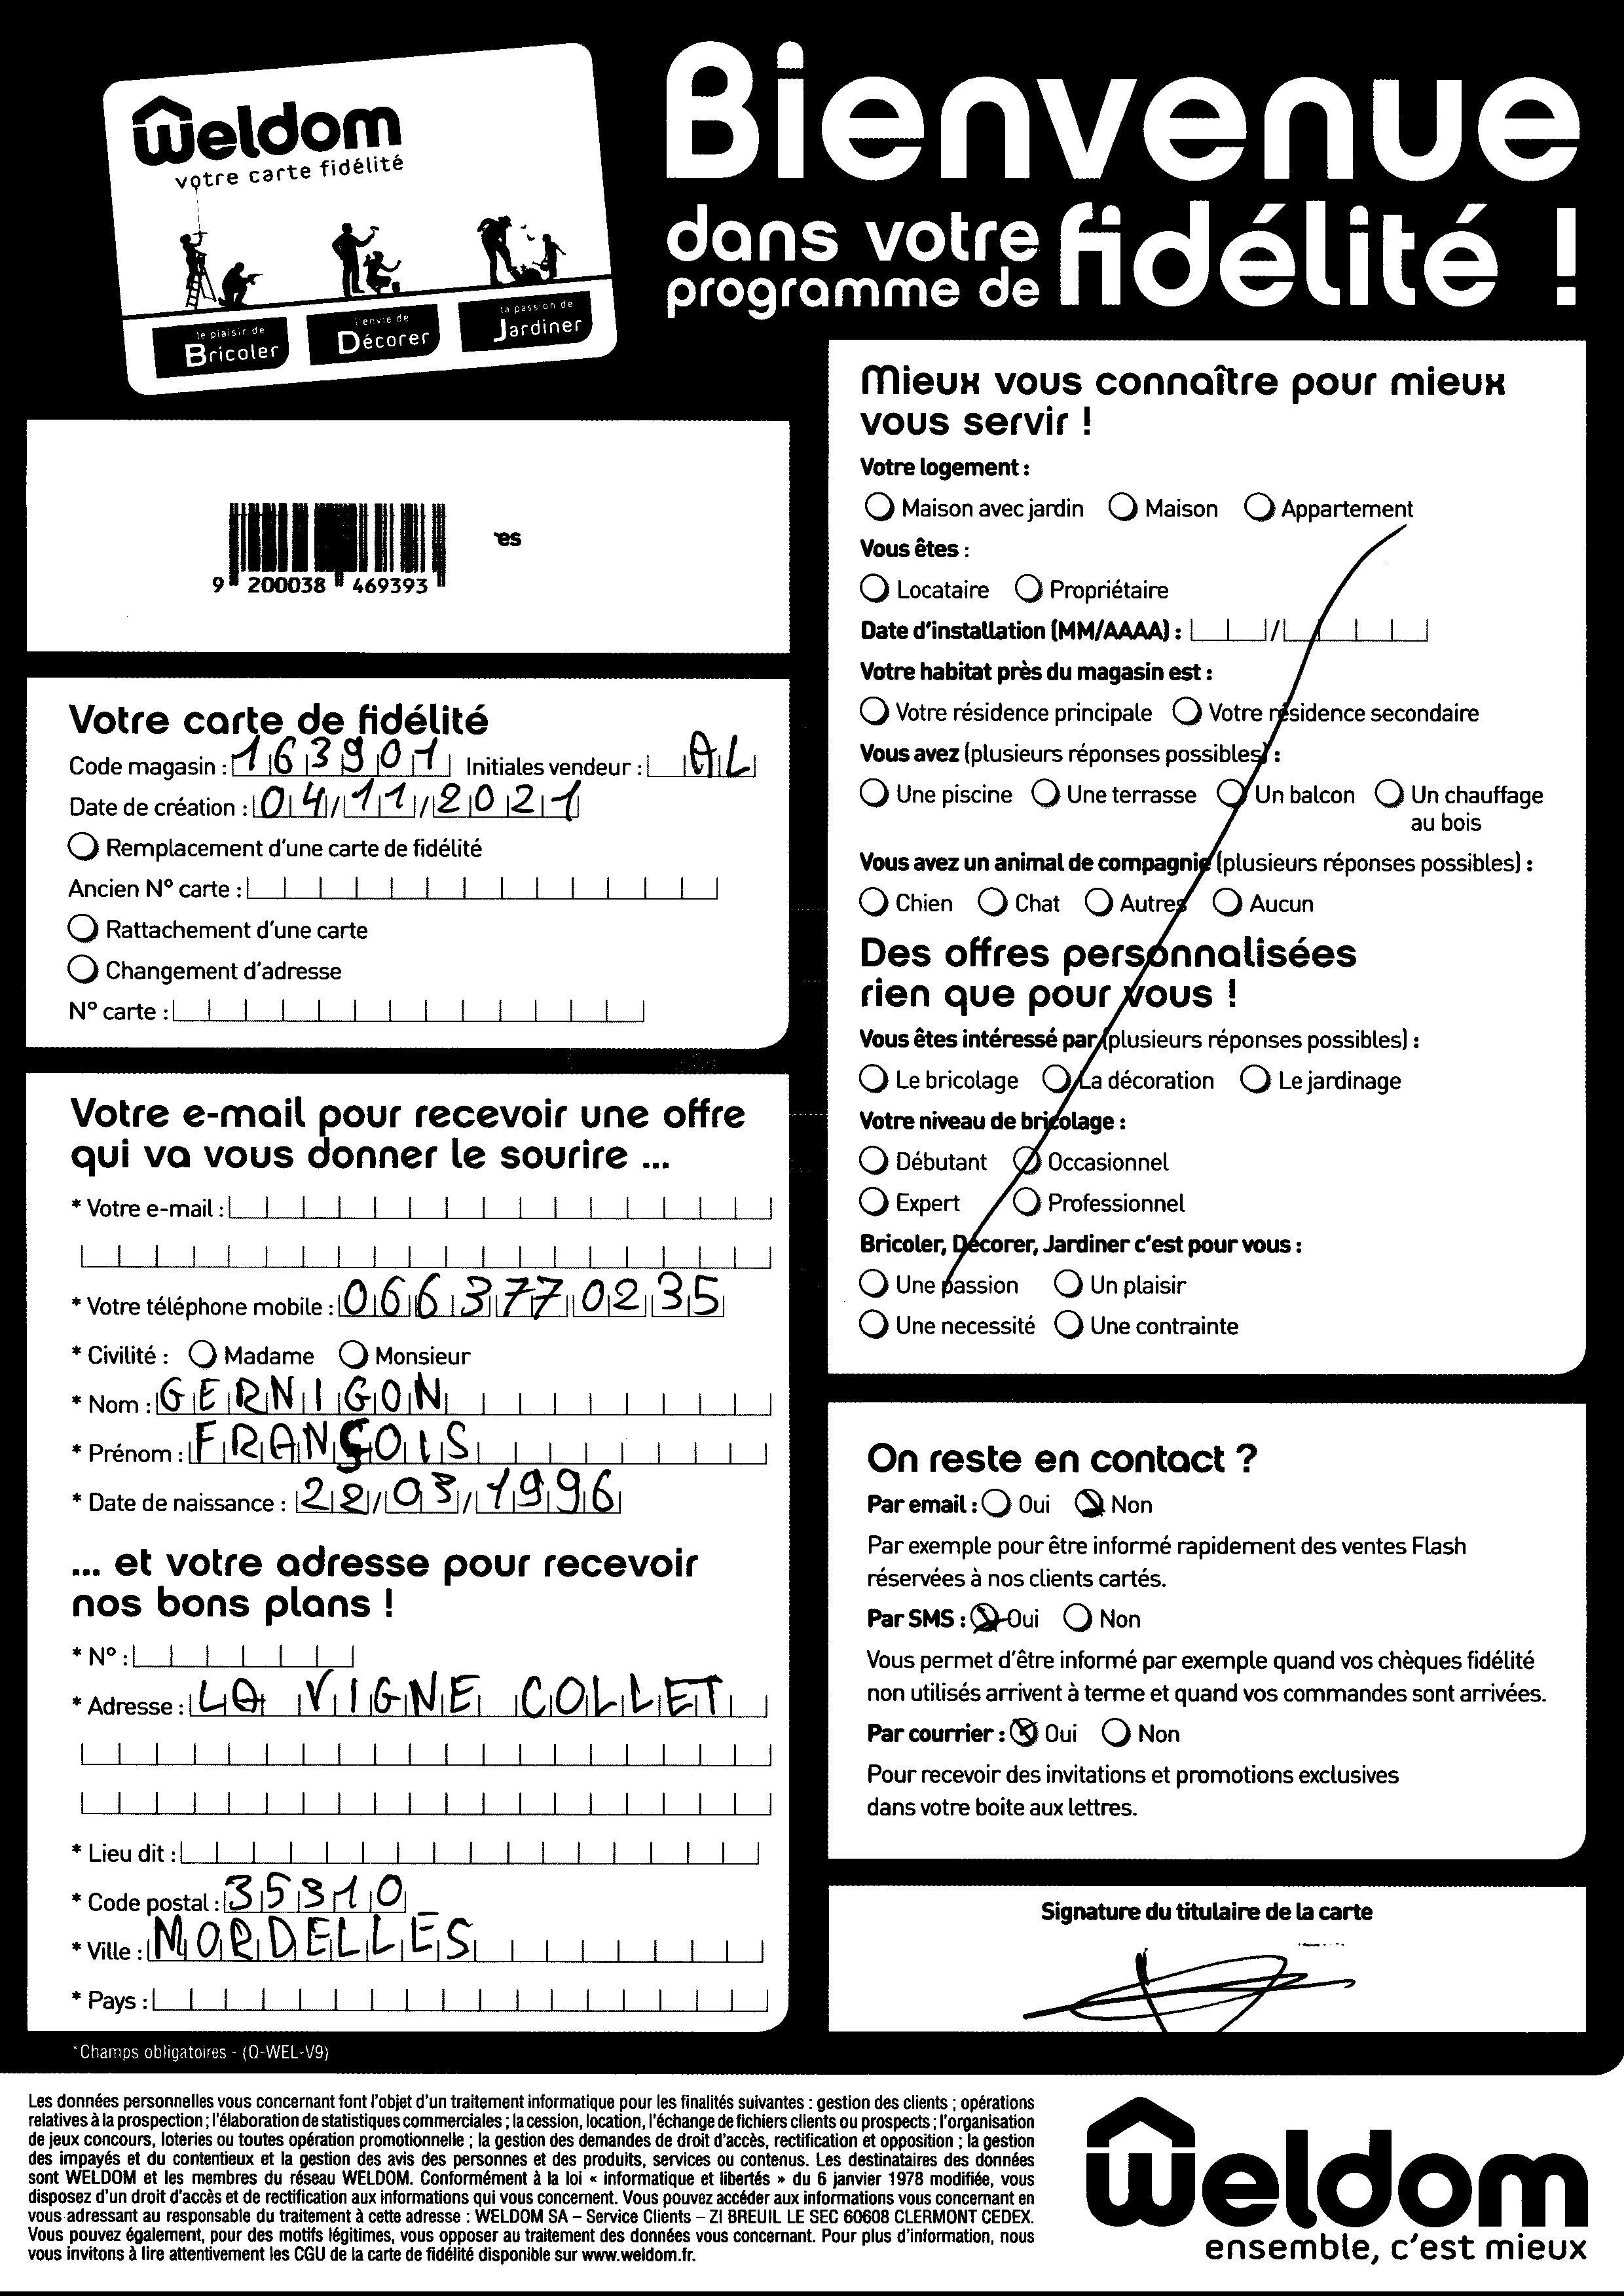 Weldom
votre carte fidélité
le plaisir de
Bricoler
l'envie de
Décorer
la passion de
Jardiner
Bienvenue
dans votre
programme de
fidélité !
es
9 200038 469393
Votre carte de fidélité
Code magasin : 163901 Initiales vendeur : AL
Date de création : 04/11/2021
Remplacement d'une carte de fidélité
Ancien N° carte :
Rattachement d'une carte
Changement d'adresse
N° carte :
Votre e-mail pour recevoir une offre
qui va vous donner le sourire ...
* Votre e-mail :
* Votre téléphone mobile : 0663770235
* Civilité : Madame Monsieur
* Nom : GERNIGON
* Prénom : FRANÇOIS
* Date de naissance : 22/03/1996
... et votre adresse pour recevoir
nos bons plans !
* N° :
* Adresse : LA VIGNE COLLET
* Lieu dit :
* Code postal : 35310
* Ville : MORDELLES
* Pays :
*Champs obligatoires - (Q-WEL-V9)
Mieux vous connaître pour mieux
vous servir !
Votre logement :
Maison avec jardin Maison Appartement
Vous êtes :
Locataire Propriétaire
Date d'installation (MM/AAAA) : /
Votre habitat près du magasin est :
Votre résidence principale Votre résidence secondaire
Vous avez (plusieurs réponses possibles) :
Une piscine Une terrasse Un balcon Un chauffage
au bois
Vous avez un animal de compagnie (plusieurs réponses possibles) :
Chien Chat Autres Aucun
Des offres personnalisées
rien que pour vous !
Vous êtes intéressé par (plusieurs réponses possibles) :
Le bricolage La décoration Le jardinage
Votre niveau de bricolage :
Débutant Occasionnel
Expert Professionnel
Bricoler, Décorer, Jardiner c'est pour vous :
Une passion Un plaisir
Une necessité Une contrainte
On reste en contact ?
Par email : Oui Non
Par exemple pour être informé rapidement des ventes Flash
réservées à nos clients cartés.
Par SMS : Oui Non
Vous permet d'être informé par exemple quand vos chèques fidélité
non utilisés arrivent à terme et quand vos commandes sont arrivées.
Par courrier : Oui Non
Pour recevoir des invitations et promotions exclusives
dans votre boite aux lettres.
Signature du titulaire de la carte
Les données personnelles vous concernant font l'objet d'un traitement informatique pour les finalités suivantes : gestion des clients ; opérations
relatives à la prospection ; l'élaboration de statistiques commerciales ; la cession, location, l'échange de fichiers clients ou prospects ; l'organisation
de jeux concours, loteries ou toutes opération promotionnelle ; la gestion des demandes de droit d'accès, rectification et opposition ; la gestion
des impayés et du contentieux et la gestion des avis des personnes et des produits, services ou contenus. Les destinataires des données
sont WELDOM et les membres du réseau WELDOM. Conformément à la loi « informatique et libertés » du 6 janvier 1978 modifiée, vous
disposez d'un droit d'accès et de rectification aux informations qui vous concernent. Vous pouvez accéder aux informations vous concernant en
vous adressant au responsable du traitement à cette adresse : WELDOM SA – Service Clients – ZI BREUIL LE SEC 60608 CLERMONT CEDEX.
Vous pouvez également, pour des motifs légitimes, vous opposer au traitement des données vous concernant. Pour plus d'information, nous
vous invitons à lire attentivement les CGU de la carte de fidélité disponible sur www.weldom.fr.
Weldom
ensemble, c'est mieux